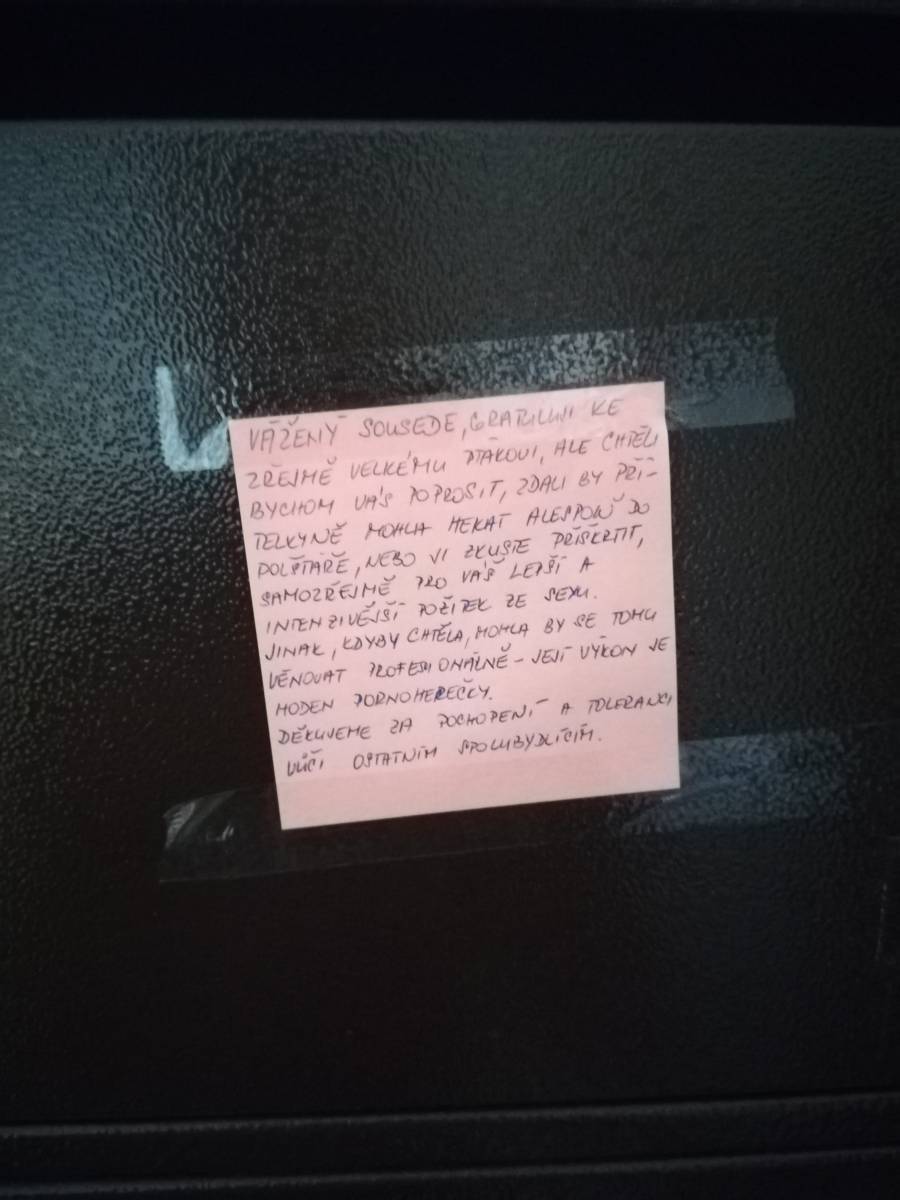 VÁŽENÝ SOUSEDE, GRATULUJI KE
ZŘEJMĚ VELKÉMU PTÁKOVI, ALE CHTĚLI
BYCHOM VÁS POPROSIT, ZDALI BY PŘÍ-
TELKYNĚ MOHLA HEKAT ALESPOŇ DO
POLŠTÁŘE, NEBO JI ZKUSTE PŘIŠKRTIT,
SAMOZŘEJMĚ PRO VÁŠ LEPŠÍ A
INTENZIVĚJŠÍ POŽITEK ZE SEXU.
JINAK, KDYBY CHTĚLA, MOHLA BY SE TOMU
VĚNOVAT PROFESIONÁLNĚ - JEJÍ VÝKON JE
HODEN PORNOHEREČKY.
DĚKUJEME ZA POCHOPENÍ A TOLERANCI
VŮČI OSTATNÍM SPOLUBYDLÍCÍM.